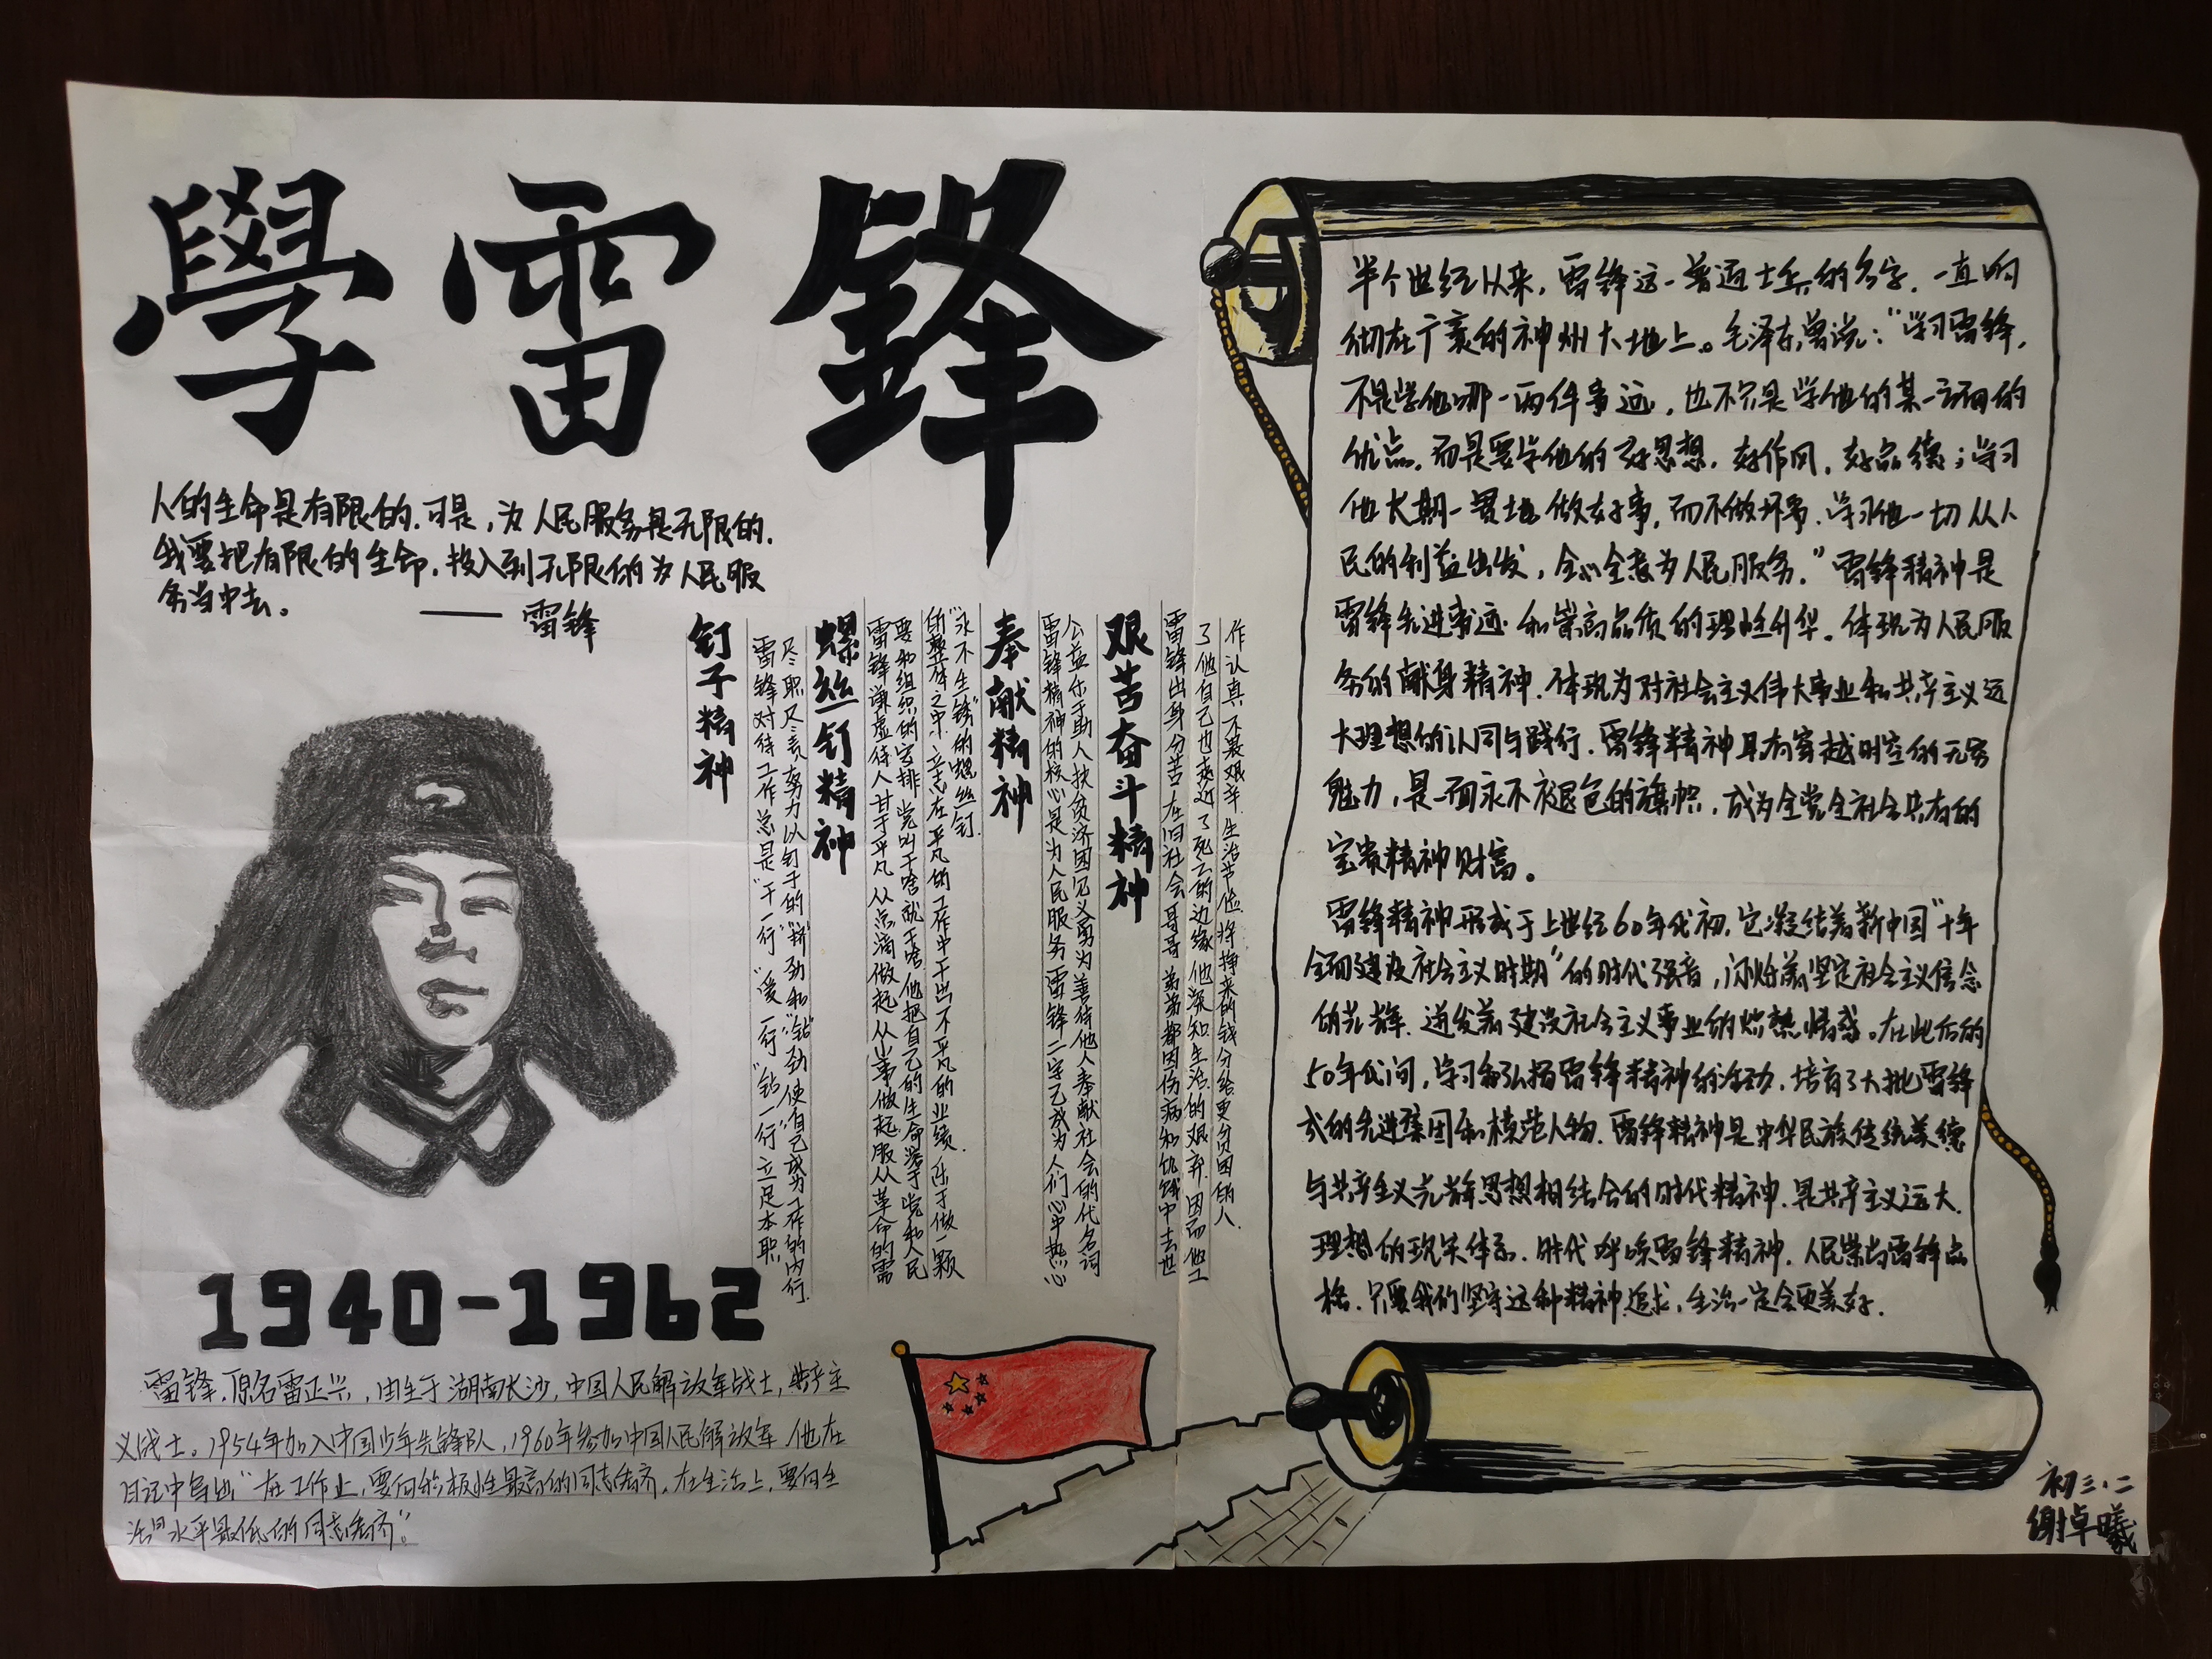 學雷锋
人的生命是有限的.可是,为人民服务是无限的.
我要把有限的生命.投入到无限的为人民服
务当中去。
—— 雷锋
钉子精神
雷锋对待工作总是"干一行""爱一行""钻一行"立足本职
尽职尽责努力以钉子的"挤"劲和"钻"劲使自己成为工作的内行.
螺丝钉精神
雷锋谦虚待人甘于平凡从点滴做起从小事做起服从革命的需
要和组织的安排党叫干啥就干啥他把自己的生命溶于党和人民
的整体之中.立志在平凡的工作中干出不平凡的业绩.乐于做一颗
"永不生锈"的螺丝钉.
奉献精神
雷锋精神的核心是为人民服务雷锋二字已成为人们心中热心
公益乐于助人扶贫济困见义勇为善待他人奉献社会的代名词
艰苦奋斗精神
雷锋出身分苦在旧社会哥哥弟弟都因伤病和饥饿中去世
了他自己也接近了死亡的边缘他深知生活的艰辛因而他工
作认真不畏艰辛生活节俭将挣来的钱分给更贫困的人.
1940-1962
雷锋.原名雷正兴,出生于湖南长沙,中国人民解放军战士,共产主
义战士。1954年加入中国少年先锋队,1960年参加中国人民解放军.他在
日记中写出"在工作上,要向积极性最高的同志看齐.在生活上,要向生
活水平最低的同志看齐"。
半个世纪以来,雷锋这一普通士兵的名字.一直响
彻在广袤的神州大地上。毛泽东曾说:"学习雷锋,
不是学他哪一两件事迹,也不只是学他的某一方面的
优点.而是要学他的好思想.好作风,好品德;学习
他长期一贯地做好事,而不做坏事.学习他一切从人
民的利益出发,全心全意为人民服务."雷锋精神是
雷锋先进事迹和崇高品质的理性升华.体现为人民服
务的献身精神.体现为对社会主义伟大事业和共产主义远
大理想的认同与践行.雷锋精神具有穿越时空的无穷
魅力,是一面永不褪色的旗帜,成为全党全社会共有的
宝贵精神财富。
雷锋精神形成于上世纪60年代初.它凝结着新中国"十年
全面建设社会主义时期"的时代强音,闪烁着坚定社会主义信念
的光辉.迸发着建设社会主义事业的炽热情感。在此后的
50年代间,学习和弘扬雷锋精神的活动.培育了大批雷锋
式的先进集团和模范人物.雷锋精神是中华民族传统美德
与共产主义光辉思想相结合的时代精神.是共产主义远大
理想的现实体系.时代呼唤雷锋精神.人民崇尚雷锋品
格.只要我们坚守这种精神追求,生活一定会更美好.
初三.二
谢卓曦